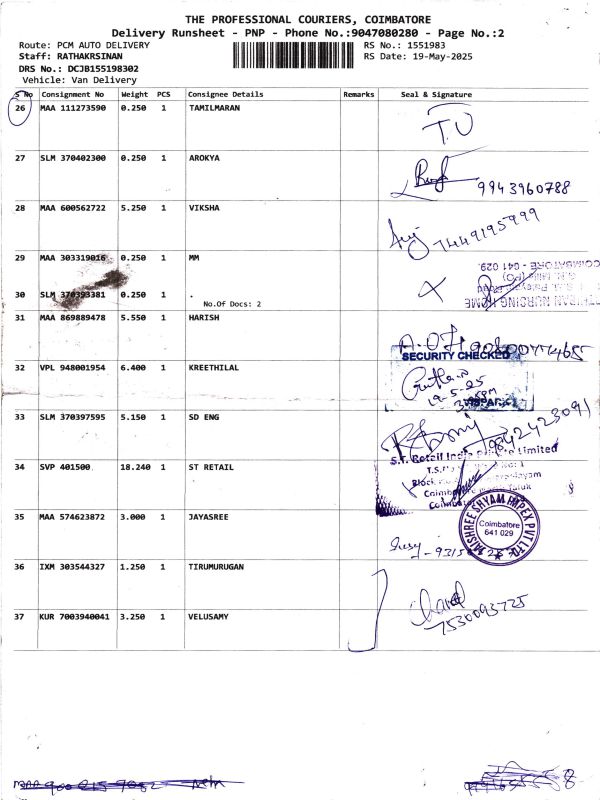 THE PROFESSIONAL COURIERS, COIMBATORE
Delivery Runsheet - PNP - Phone No.:9047080280 - Page No.:2
Route: PCM AUTO DELIVERY
RS No.: 1551983
Staff: RATHAKRSINAN
RS Date: 19-May-2025
DRS No.: DCJB155198302
Vehicle: Van Delivery
S No Consignment No Weight PCS Consignee Details Remarks Seal & Signature
26 MAA 111273590 0.250 1 TAMILMARAN
T.U
27 SLM 370402300 0.250 1 AROKYA
9943960788
28 MAA 600562722 5.250 1 VIKSHA
7449195999
29 MAA 303319016 0.250 1 MM
COIMBATORE - 641 029.
30 SLM 370393381 0.250 1 .
No.Of Docs: 2
NURSING HOME
31 MAA 869889478 5.550 1 HARISH
32 VPL 948001954 6.400 1 KREETHILAL
SECURITY CHECKED
19-5-25
33 SLM 370397595 5.150 1 SD ENG
9842423091
34 SVP 401500 18.240 1 ST RETAIL
S.T. Retail India Private Limited
35 MAA 574623872 3.000 1 JAYASREE
JAISHREE SHYAM IMPEX PVT LTD.
Coimbatore
641 029
36 IXM 303544327 1.250 1 TIRUMURUGAN
7530093725
37 KUR 7003940041 3.250 1 VELUSAMY